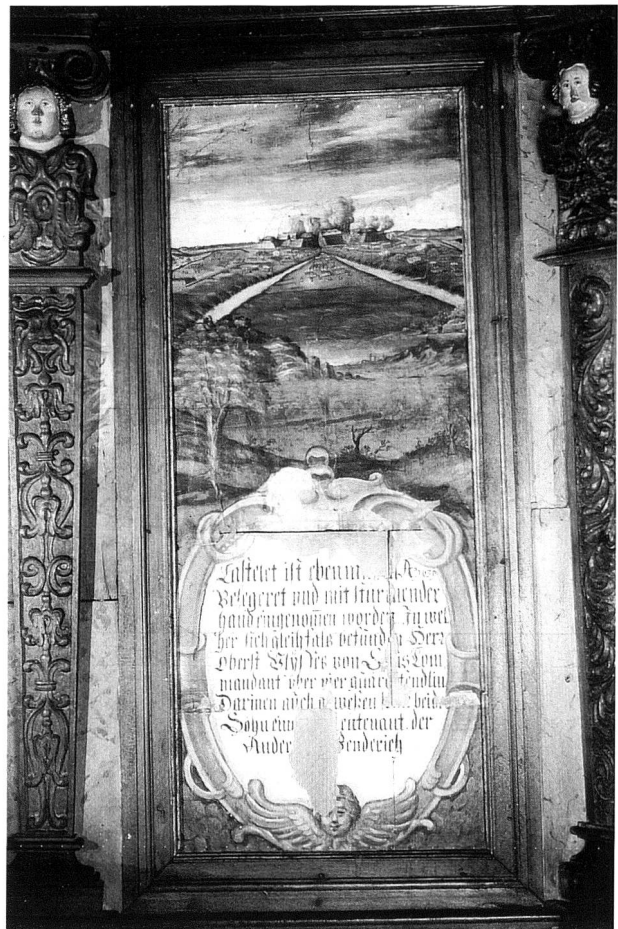 Castelet ist ebenm
Belegeret vnd mit stürmender
hand eingenom̄en worden Jn wel
her sich gleihfals befunden Herr
Oberst Vlysses von
mandant vber vier
Darinen auch beid
Sohn ein entenant der
Ander Fenderich